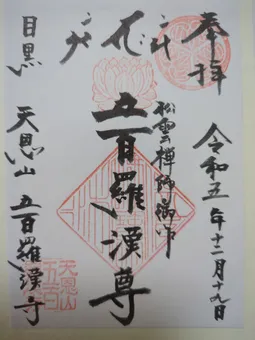 奉拝
令和五年十二月十九日
松雲禅師御作
五百羅漢尊
目黒
天恩山 五百羅漢寺
天恩山
五百